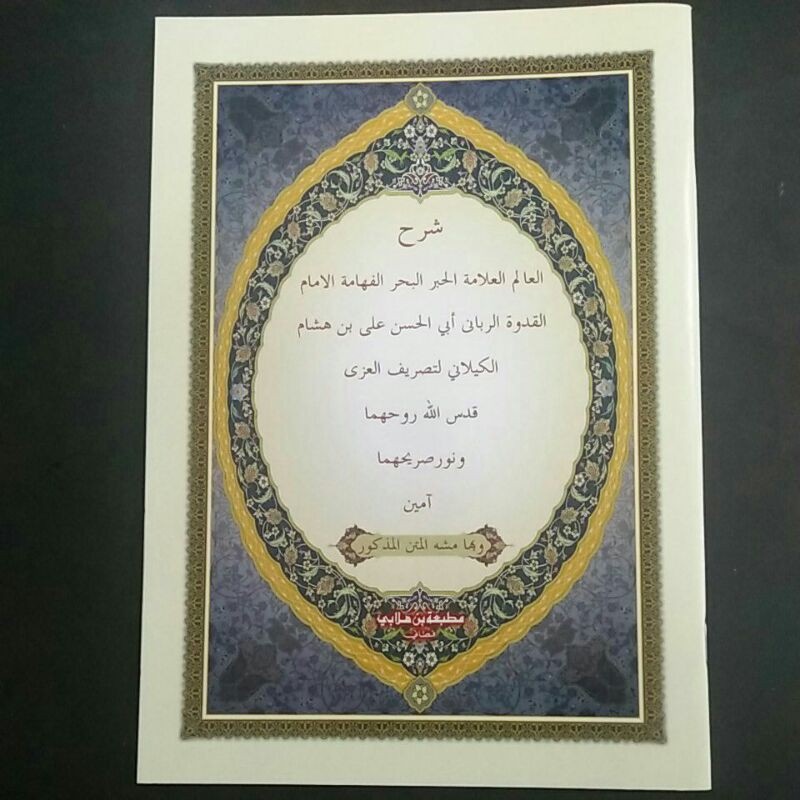 شرح
العالم العلامة الحبر البحر الفهامة الامام
القدوة الربانى أبي الحسن على بن هشام
الكيلاني لتصريف العزى
قدس الله روحهما
ونورصريحهما
آمين
وبها مشه المتن المذكور
مطبعة بن هلابي